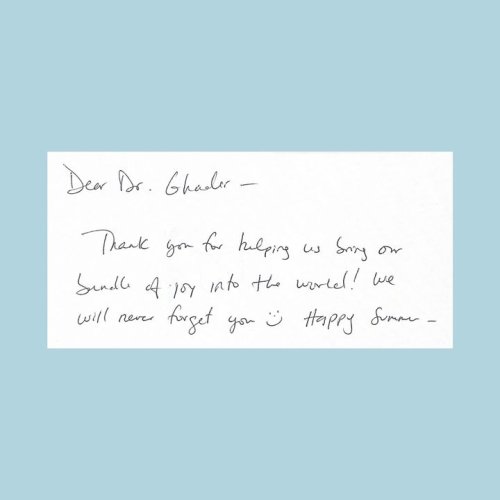 Dear Dr. Ghader —
Thank you for helping us bring our
bundle of joy into the world! We
will never forget you :) Happy Summer —